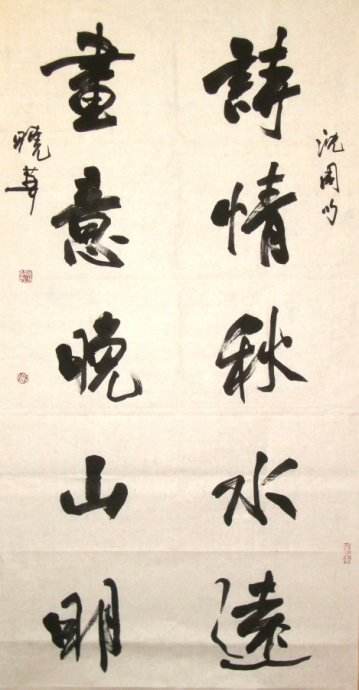 沈周句
詩情秋水遠
畫意晚山明
曉華